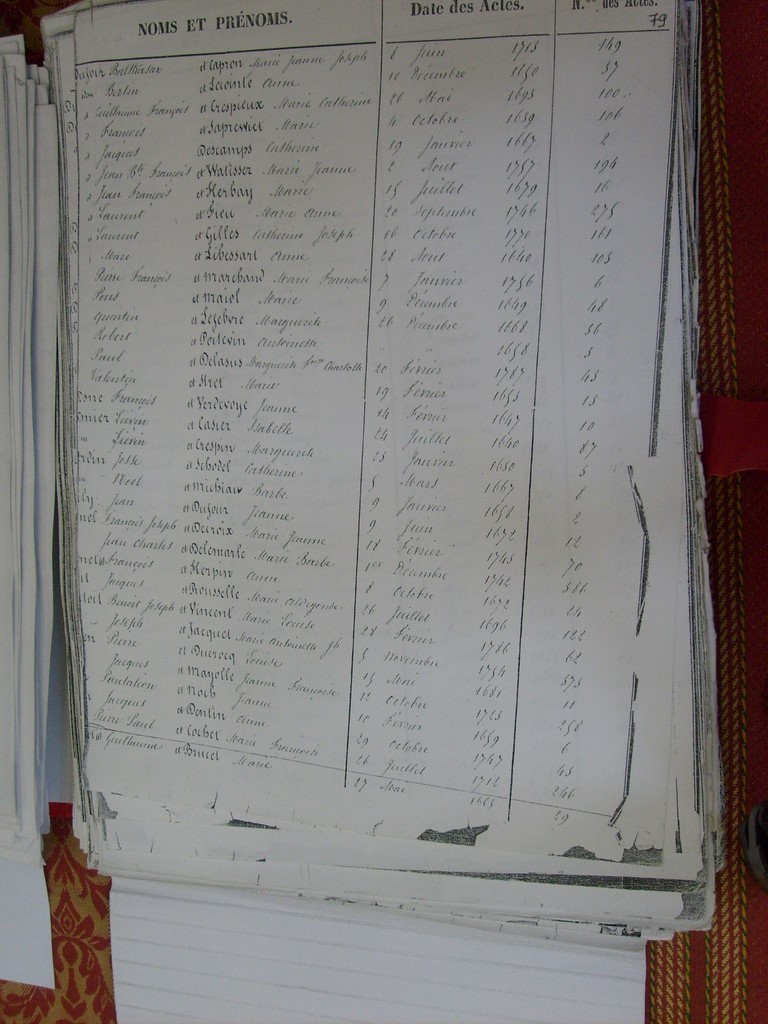 NOMS ET PRÉNOMS. Date des Actes. N.os des Actes.
79
Dufour Balthasar et Capron Marie Jeanne Joseph 8 Juin 1713 149
Bertin et Lecointe Anne 10 Décembre 1650 37
Guillaume François et Crespieux Marie Catherine 21 Mai 1693 100
François et Lapreviel Marie 4 Octobre 1659 106
Jacques Descamps Catherine 19 Janvier 1667 2
Jean Bte François et Watissez Marie Jeanne 2 Aout 1757 194
Jean François et Herbay Marie 15 Juillet 1679 16
Laurent et Fieu Marie Anne 20 Septembre 1746 275
Laurent et Gilles Catherine Joseph 16 Octobre 1770 161
Marc et Libessart Anne 28 Aout 1640 105
Pierre François et Marchand Marie Françoise 7 Janvier 1756 6
et Maiol Marie 9 Décembre 1649 48
Quentin et Lefebvre Marguerite 26 Décembre 1668 56
Robert et Poitevin Antoinette " " 1658 5
Paul et Delasus Marguerite Charlotte 20 Février 1787 45
Valentin et Hrel Marie 19 Février 1653 15
François et Verdevoye Jeanne 14 Février 1647 10
Liévin et Casier Isabelle 24 Juillet 1640 87
" Liévin et Crespin Marguerite 25 Janvier 1650 5
Josse et Schodel Catherine 5 Mars 1667 8
" Noel et Michiau Barbe 9 Janvier 1658 2
Jean et Dufour Jeanne 9 Juin 1672 12
François Joseph et Decroix Marie Jeanne 18 Février 1743 70
Jean Charles et Delemarle Marie Barbe 1er Décembre 1742 586
François et Herpin Anne 8 Octobre 1672 24
Jacques et Rousselle Marie Aldegonde 26 Juillet 1696 122
Benoit Joseph et Vincent Marie Louise 28 Février 1786 62
Joseph et Jacquet Marie Antoinette Jh 5 Novembre 1754 575
Pierre et Ducrocq Louise 15 Mai 1681 11
Jacques et Mayolle Jeanne Françoise 12 Octobre 1723 258
Pantaléon et Noch Jeanne 10 Février 1659 6
Jacques et Dontin Anne 29 Octobre 1747 45
Pierre Paul et Cochet Marie Françoise 26 Juillet 1712 246
Guillaume et Brucet Marie 27 Mai 1665 29